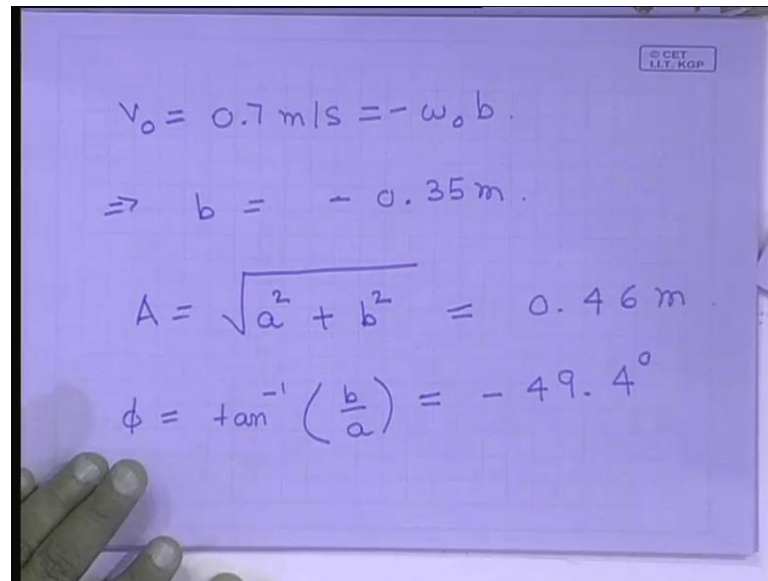 © CET
I.I.T. KGP
V₀ = 0.7 m/s = - ω₀ b.
⇒ b = - 0.35 m.
A = √(a² + b²) = 0.46 m.
ϕ = tan⁻¹ (b/a) = - 49.4°